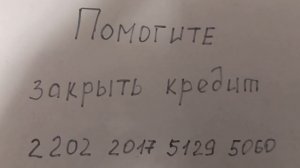 Помогите
закрыть кредит
2202 2017 5129 5060